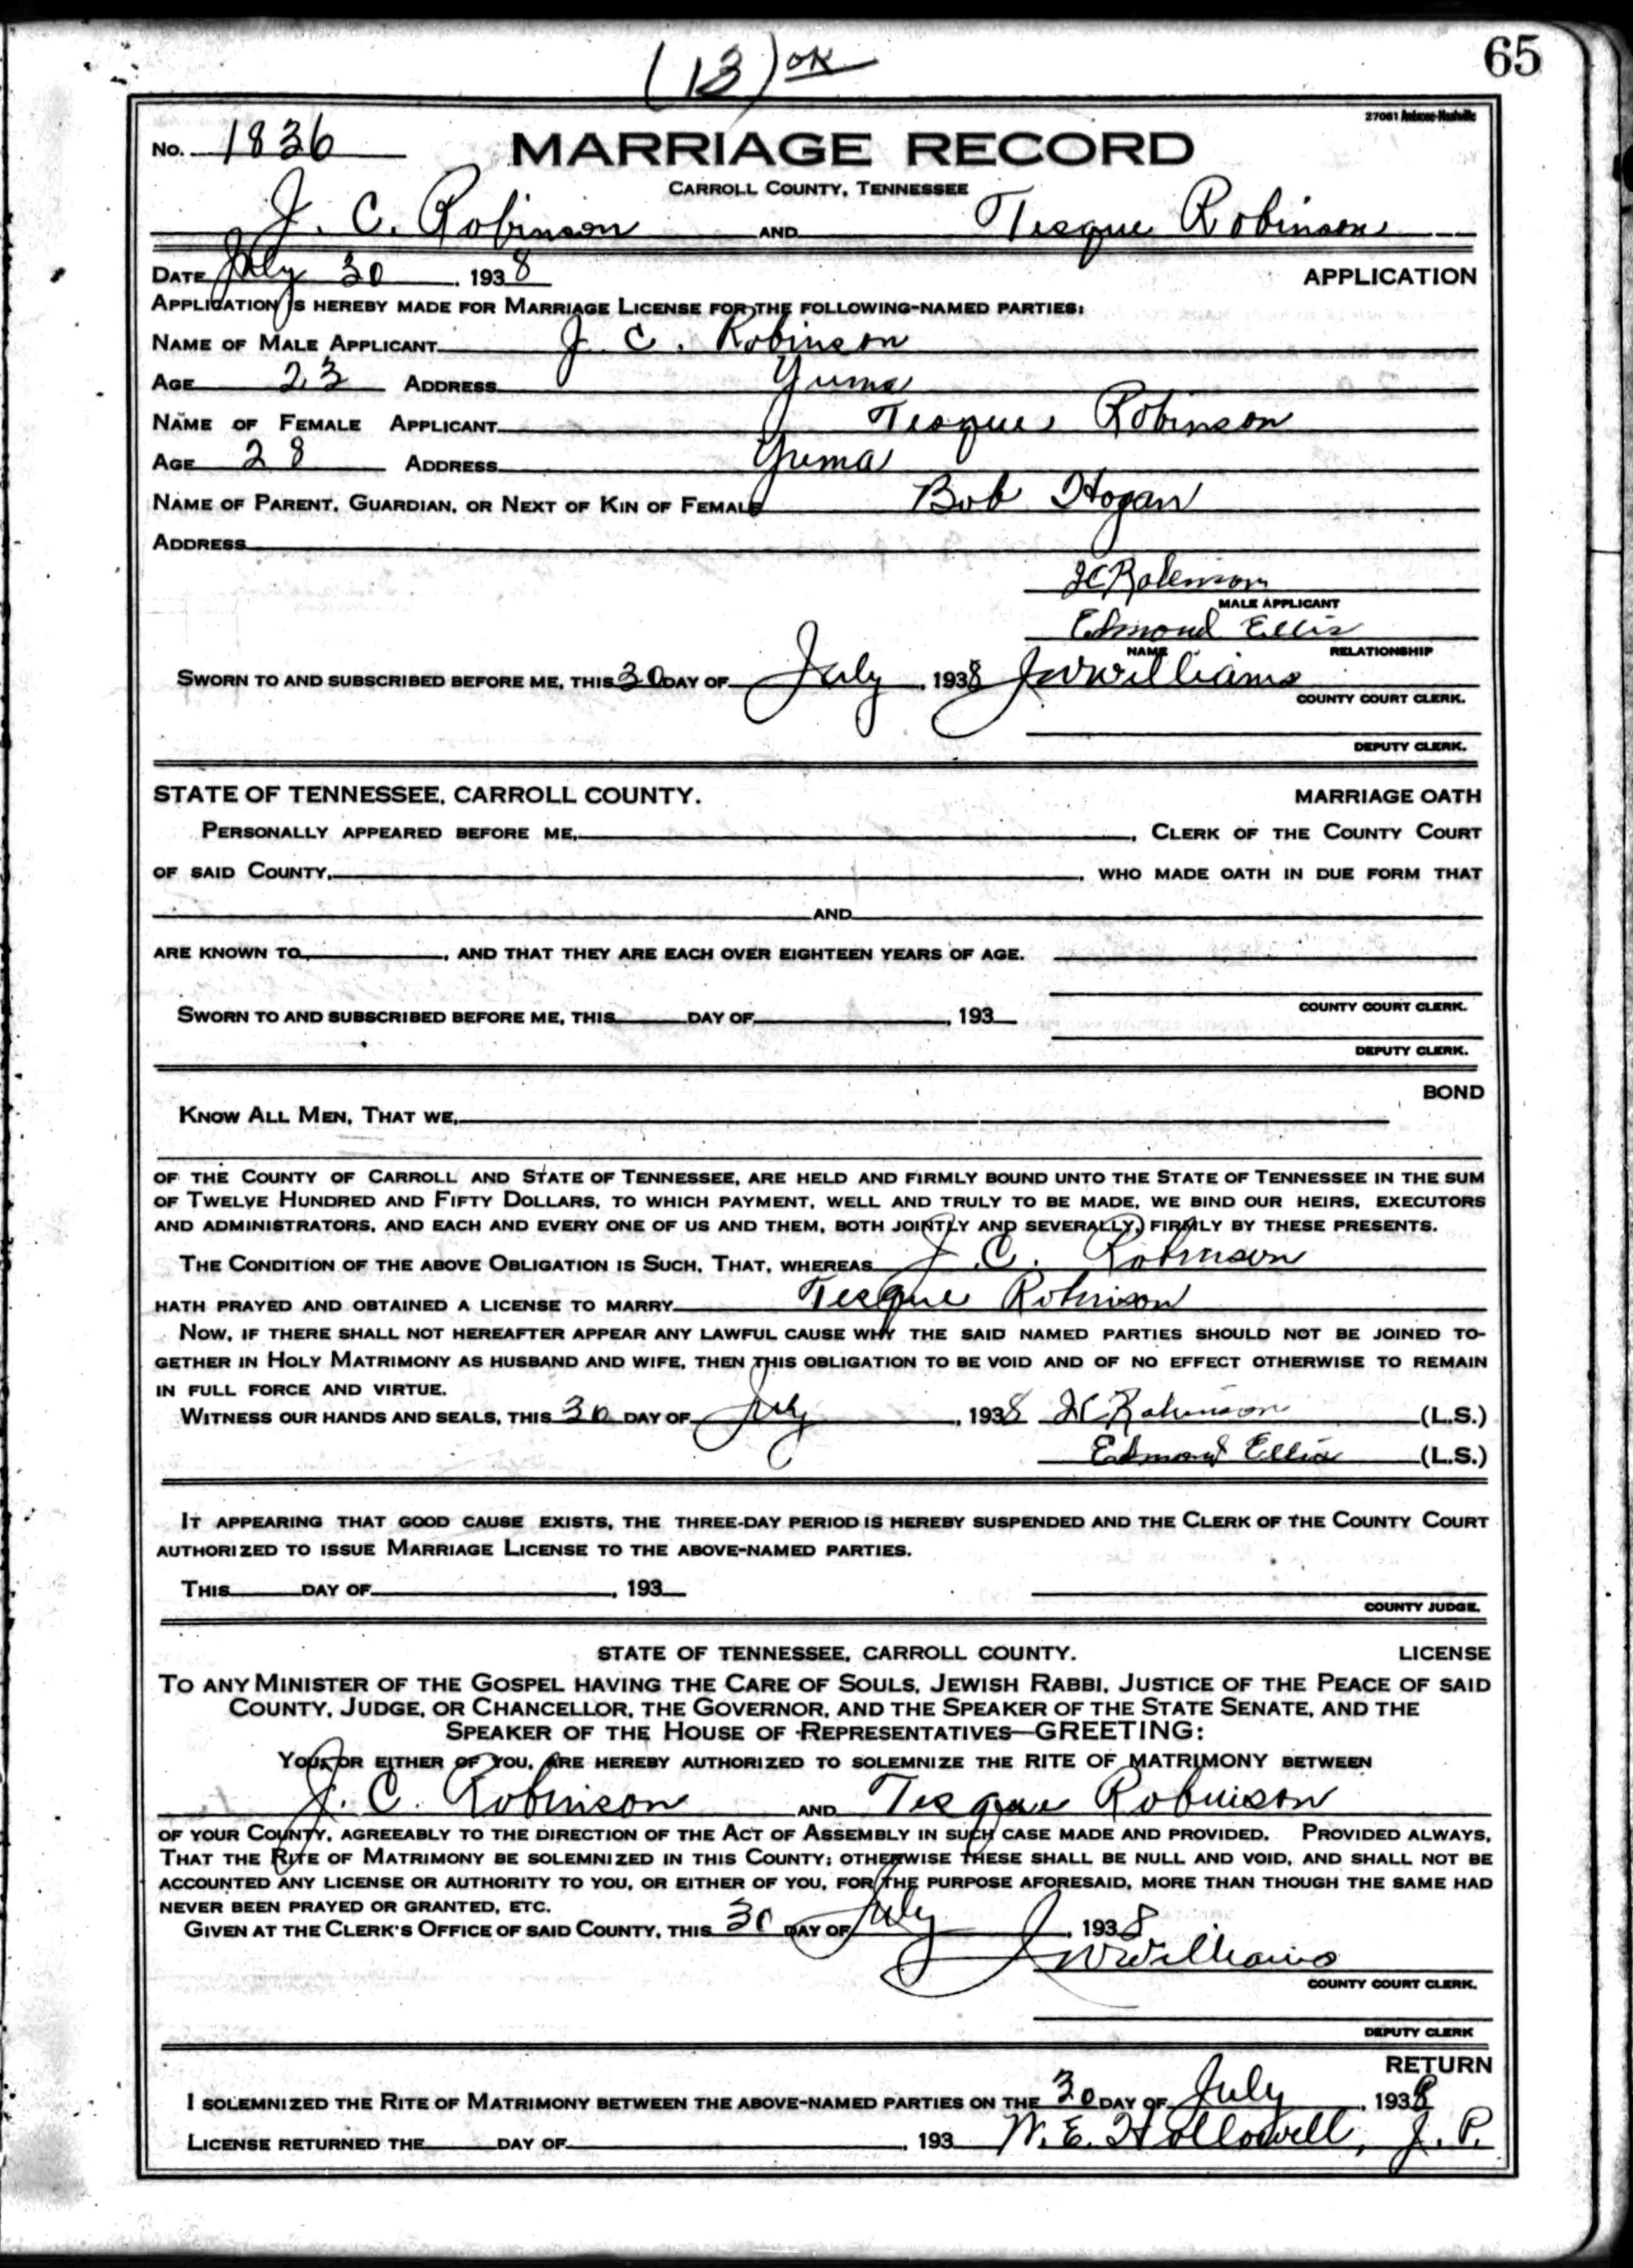 (13) OK
65
27061 Ambrose-Nashville
No. 1836
MARRIAGE RECORD
CARROLL COUNTY, TENNESSEE
J. C. Robinson AND Tesque Robinson
DATE July 30, 1938 APPLICATION
APPLICATION IS HEREBY MADE FOR MARRIAGE LICENSE FOR THE FOLLOWING-NAMED PARTIES:
NAME OF MALE APPLICANT J. C. Robinson
AGE 23 ADDRESS Yuma
NAME OF FEMALE APPLICANT Tesque Robinson
AGE 28 ADDRESS Yuma
NAME OF PARENT, GUARDIAN, OR NEXT OF KIN OF FEMALE Bob Hogan
ADDRESS
J C Robinson
MALE APPLICANT
Edmond Ellis
NAME RELATIONSHIP
SWORN TO AND SUBSCRIBED BEFORE ME, THIS 30 DAY OF July, 1938 J W Williams
COUNTY COURT CLERK.
DEPUTY CLERK.
STATE OF TENNESSEE, CARROLL COUNTY. MARRIAGE OATH
PERSONALLY APPEARED BEFORE ME, , CLERK OF THE COUNTY COURT
OF SAID COUNTY, , WHO MADE OATH IN DUE FORM THAT
AND
ARE KNOWN TO , AND THAT THEY ARE EACH OVER EIGHTEEN YEARS OF AGE.
COUNTY COURT CLERK.
SWORN TO AND SUBSCRIBED BEFORE ME, THIS DAY OF , 193
DEPUTY CLERK.
BOND
KNOW ALL MEN, THAT WE,
OF THE COUNTY OF CARROLL AND STATE OF TENNESSEE, ARE HELD AND FIRMLY BOUND UNTO THE STATE OF TENNESSEE IN THE SUM
OF TWELVE HUNDRED AND FIFTY DOLLARS, TO WHICH PAYMENT, WELL AND TRULY TO BE MADE, WE BIND OUR HEIRS, EXECUTORS
AND ADMINISTRATORS, AND EACH AND EVERY ONE OF US AND THEM, BOTH JOINTLY AND SEVERALLY, FIRMLY BY THESE PRESENTS.
THE CONDITION OF THE ABOVE OBLIGATION IS SUCH, THAT, WHEREAS J. C. Robinson
HATH PRAYED AND OBTAINED A LICENSE TO MARRY Tesque Robinson
NOW, IF THERE SHALL NOT HEREAFTER APPEAR ANY LAWFUL CAUSE WHY THE SAID NAMED PARTIES SHOULD NOT BE JOINED TO-
GETHER IN HOLY MATRIMONY AS HUSBAND AND WIFE, THEN THIS OBLIGATION TO BE VOID AND OF NO EFFECT OTHERWISE TO REMAIN
IN FULL FORCE AND VIRTUE.
WITNESS OUR HANDS AND SEALS, THIS 30 DAY OF July, 1938 J C Robinson (L.S.)
Edmond Ellis (L.S.)
IT APPEARING THAT GOOD CAUSE EXISTS, THE THREE-DAY PERIOD IS HEREBY SUSPENDED AND THE CLERK OF THE COUNTY COURT
AUTHORIZED TO ISSUE MARRIAGE LICENSE TO THE ABOVE-NAMED PARTIES.
THIS DAY OF , 193
COUNTY JUDGE.
STATE OF TENNESSEE, CARROLL COUNTY. LICENSE
TO ANY MINISTER OF THE GOSPEL HAVING THE CARE OF SOULS, JEWISH RABBI, JUSTICE OF THE PEACE OF SAID
COUNTY, JUDGE, OR CHANCELLOR, THE GOVERNOR, AND THE SPEAKER OF THE STATE SENATE, AND THE
SPEAKER OF THE HOUSE OF REPRESENTATIVES—GREETING:
YOU, OR EITHER OF YOU, ARE HEREBY AUTHORIZED TO SOLEMNIZE THE RITE OF MATRIMONY BETWEEN
J. C. Robinson AND Tesque Robinson
OF YOUR COUNTY, AGREEABLY TO THE DIRECTION OF THE ACT OF ASSEMBLY IN SUCH CASE MADE AND PROVIDED. PROVIDED ALWAYS,
THAT THE RITE OF MATRIMONY BE SOLEMNIZED IN THIS COUNTY; OTHERWISE THESE SHALL BE NULL AND VOID, AND SHALL NOT BE
ACCOUNTED ANY LICENSE OR AUTHORITY TO YOU, OR EITHER OF YOU, FOR THE PURPOSE AFORESAID, MORE THAN THOUGH THE SAME HAD
NEVER BEEN PRAYED OR GRANTED, ETC.
GIVEN AT THE CLERK'S OFFICE OF SAID COUNTY, THIS 30 DAY OF July, 1938
J W Williams
COUNTY COURT CLERK.
DEPUTY CLERK
RETURN
I SOLEMNIZED THE RITE OF MATRIMONY BETWEEN THE ABOVE-NAMED PARTIES ON THE 30 DAY OF July, 1938
LICENSE RETURNED THE DAY OF , 193 W. E. Hollowell, J. P.